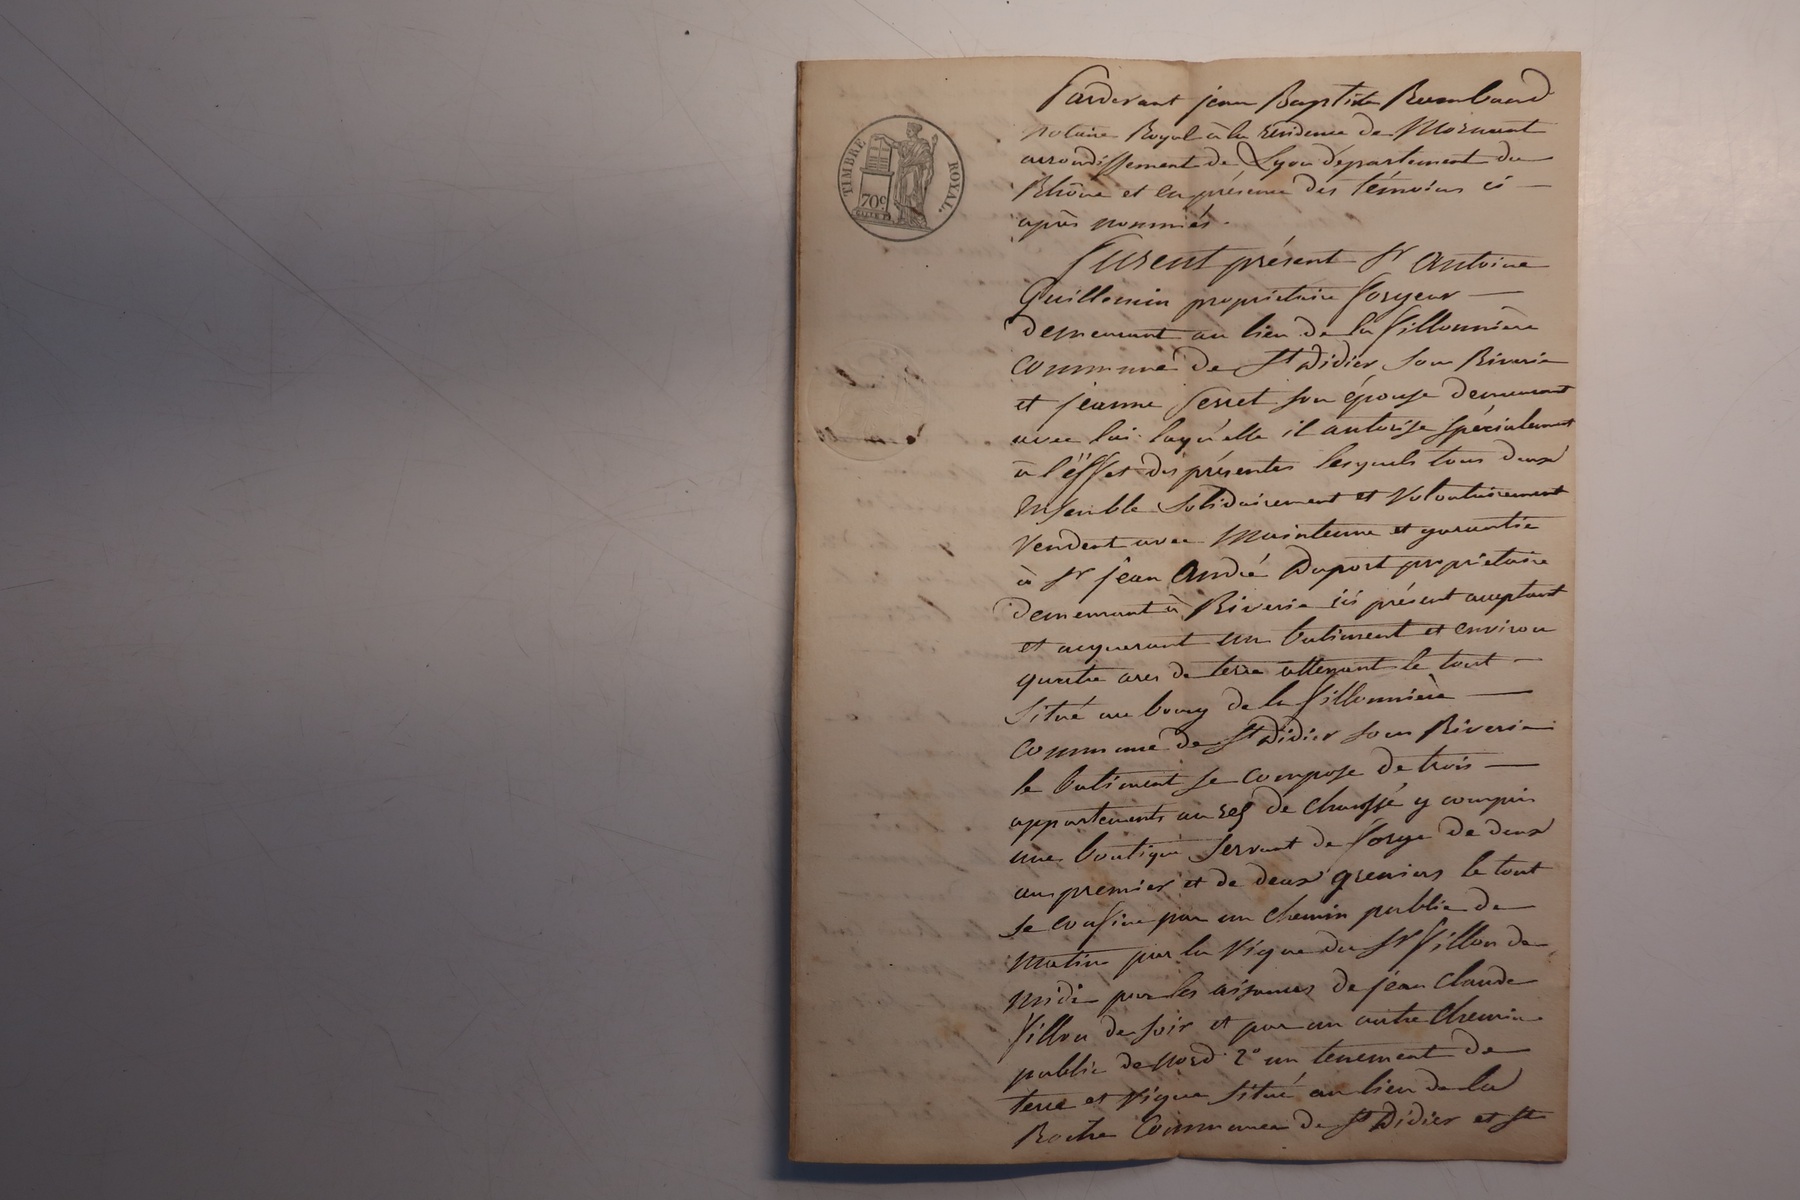 TIMBRE ROYAL.
70c
Pardevant jean Baptiste Rambaud
notaire Royal à la residence de Mornant
arrondissement de Lyon departement du
Rhône et en présence des témoins ci —
après nommés.
Furent présent Sr Antoine
Guillermin propriétaire forgeur —
demeurant au lieu de la fillonnière
commune de St Didier sous Riverie
et jeanne Serret son épouse demeurant
avec lui laquelle il autorise spécialement
à l'éffet des présentes lesquels tous deux
Ensemble solidairement et Volontairement
Vendent avec Maintenue et garantie
à Sr jean André Duport propriétaire
demeurant à Riverie ici présent acceptant
et acquerant un batiment et environ
quatre ares de terre attenant le tout —
Situé au bourg de la fillonnière —
commune de St Didier sous Riverie
le batiment se compose de trois —
appartements au res de chaussé y compris
une boutique servant de forge de deux
au premier et de deux greniers le tout
se confine par un chemin public de
matin par la Vigne du Sr fillon de
midi par les aisances de jean Claude
fillon de soir et par un autre Chemin
public de nord 2° un tenement de
terre et Vigne Situé au lieu de la
Roche Commune de St Didier et St